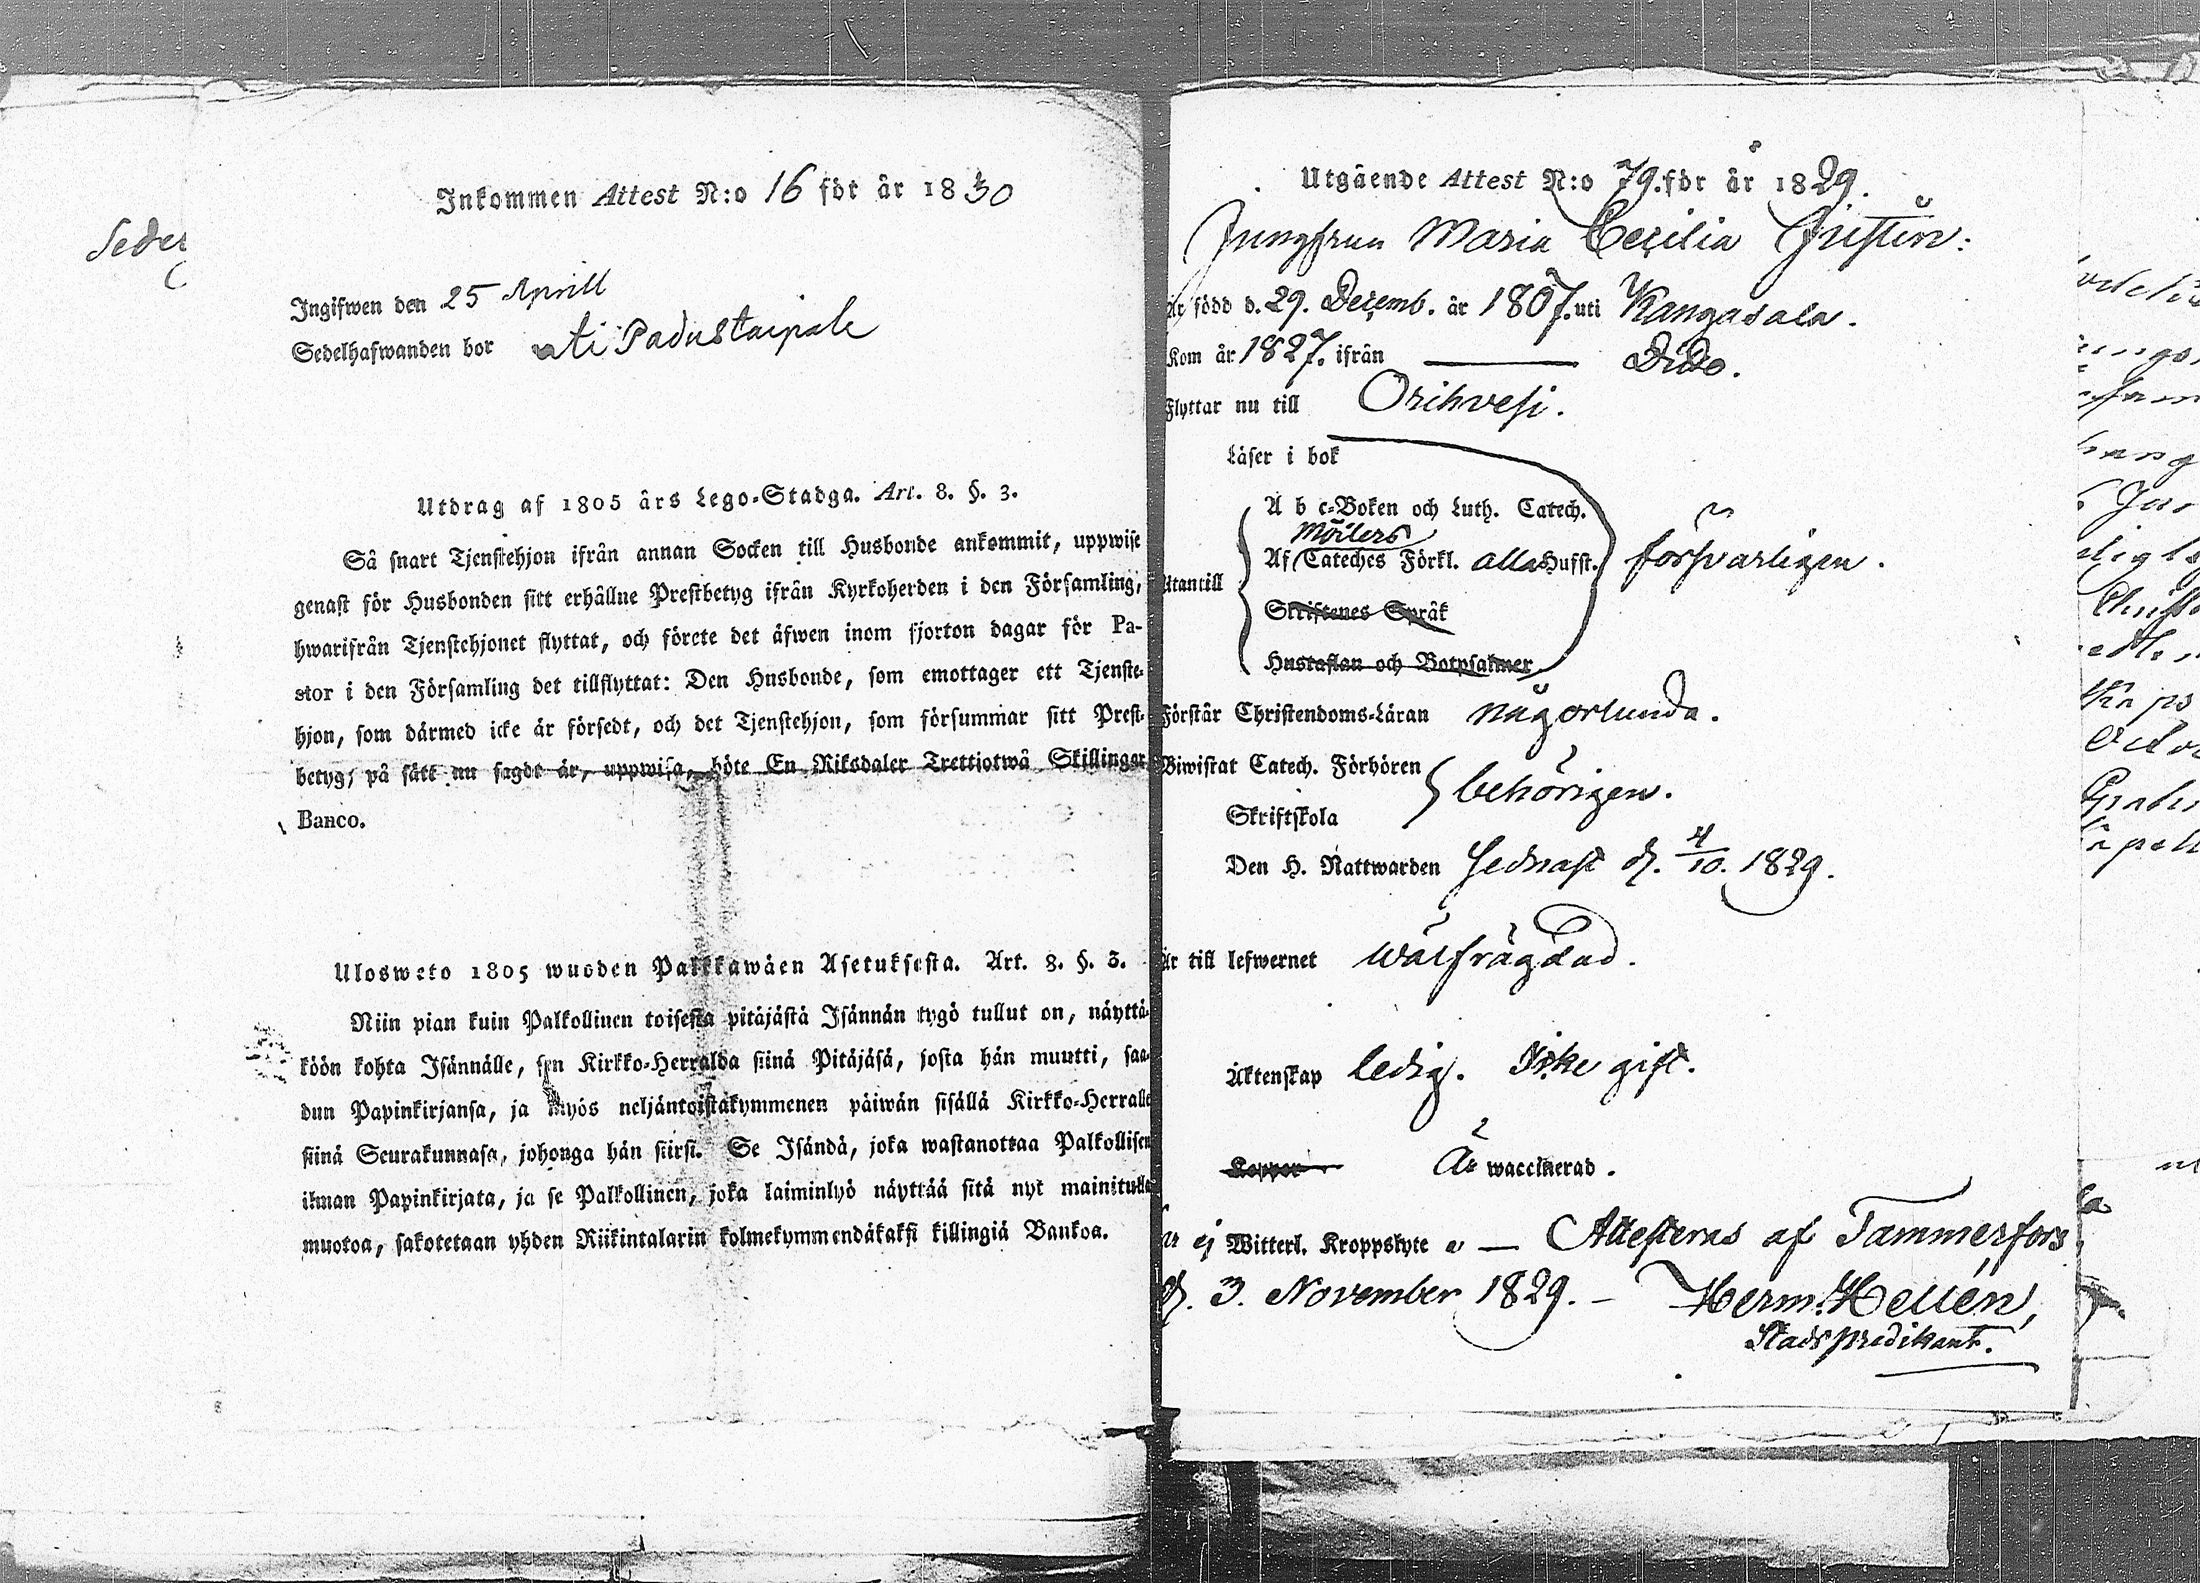 Seder
Inkommen Attest N:o 16 för år 1830
Ingifwen den 25 Aprill
Sedelhafwanden bor uti Padustaipale
Utdrag af 1805 års Lego-Stadga. Art. 8. §. 3.
Så snart Tjenstehjon ifrån annan Socken till Husbonde ankommit, uppwise
genast för Husbonden sitt erhållne Prestbetyg ifrån Kyrkoherden i den Församling,
hwarifrån Tjenstehjonet flyttat, och förete det äfwen inom fjorton dagar för Pa-
stor i den Församling det tillflyttat: Den Husbonde, som emottager ett Tjenste-
hjon, som därmed icke är försedt, och det Tjenstehjon, som försummar sitt Prest-
betyg, på sätt nu sagdt är, uppwisa, böte En Riksdaler Trettiotwå Skillingar
Banco.
Ulosweto 1805 wuoden Palkkawäen Asetuksesta. Art. 8. §. 3.
Niin pian kuin Palkollinen toisesta pitäjästä Isännän tygö tullut on, näyttä-
köön kohta Isännälle, sen Kirkko-Herralda siinä Pitäjäsä, josta hän muutti, saa-
dun Papinkirjansa, ja myös neljäntoistakymmenen päiwän sisällä Kirkko-Herralle
siinä Seurakunnasa, johonga hän siirsi. Se Isändä, joka wastanottaa Palkollisen
ilman Papinkirjata, ja se Palkollinen, joka laiminlyö näyttää sitä nyt mainitulla
muotoa, sakotetaan yhden Riikintalarin kolmekymmendäkaksi killingiä Bankoa.
Utgående Attest N:o 79. för år 1829.
Jungfrun Maria Cecilia
Är född d. 29. Decemb. år 1807. uti Kangasala.
Kom år 1827. ifrån — Dito.
Flyttar nu till Orihvesi.
Läser i bok
A b c-Boken och Luth. Catech.
Möllers
Af Cateches Förkl. alla Hufst. försvarligen.
Utantill
Skriftenes Språk
Hustaflan och Botpsalmer
Förstår Christendoms-Läran någorlunda.
Biwistat Catech. Förhören behörigen.
Skriftskola
Den H. Nattwarden sednast d. 4/10. 1829.
Är till lefwernet wälfrägdad.
Äktenskap ledig. Icke gift.
Koppor Är waccinerad.
ej Witterl. Kroppslyte — Attesteras af Tammerfors
d. 3. November 1829. — Herm. Hellén,
Stadspredikant.